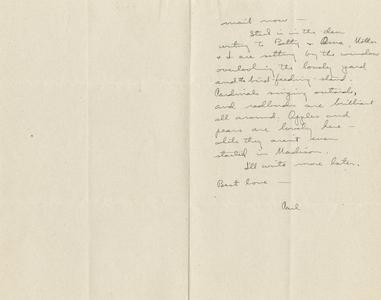 mail now —
Sted is in the den
writing to Betty & Mother
& I are sitting by the window
overlooking the lovely yard
and the bird-feeding-stand.
Cardinals singing outside,
and redbuds are brilliant
all around. Apples and
pears are lovely here —
while they aren't even
started in Madison.
I'll write more later.
Best love —